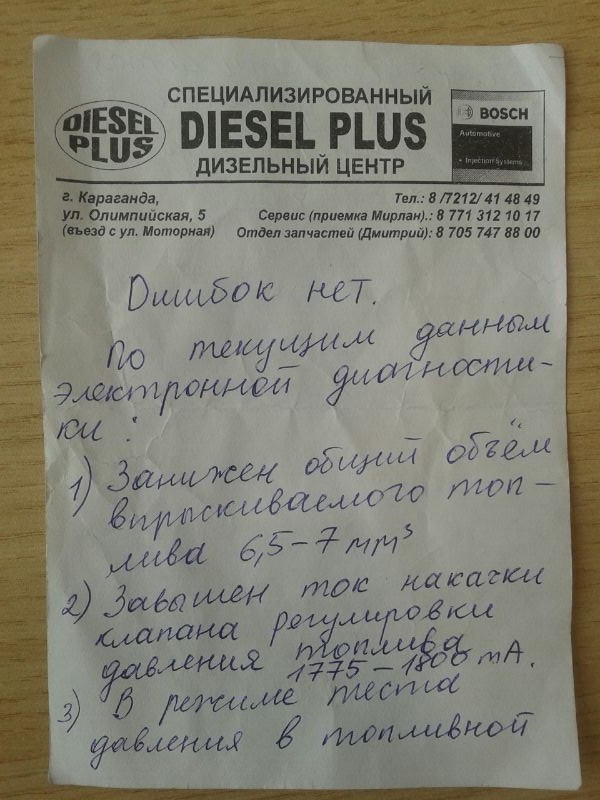 DIESEL PLUS
СПЕЦИАЛИЗИРОВАННЫЙ
DIESEL PLUS
ДИЗЕЛЬНЫЙ ЦЕНТР
BOSCH
Automotive
• Injection Systems
г. Караганда,
ул. Олимпийская, 5
(въезд с ул. Моторная)
Тел.: 8 /7212/ 41 48 49
Сервис (приемка Мирлан).: 8 771 312 10 17
Отдел запчастей (Дмитрий): 8 705 747 88 00
Ошибок нет.
По текущим данным
электронной диагности-
ки :
1) Занижен общий объём
впрыскиваемого топ-
лива 6,5-7 мм³
2) Завышен ток накачки
клапана регулировки
давления топлива
1775-1800 mA.
3) В режиме теста
давления в топливной